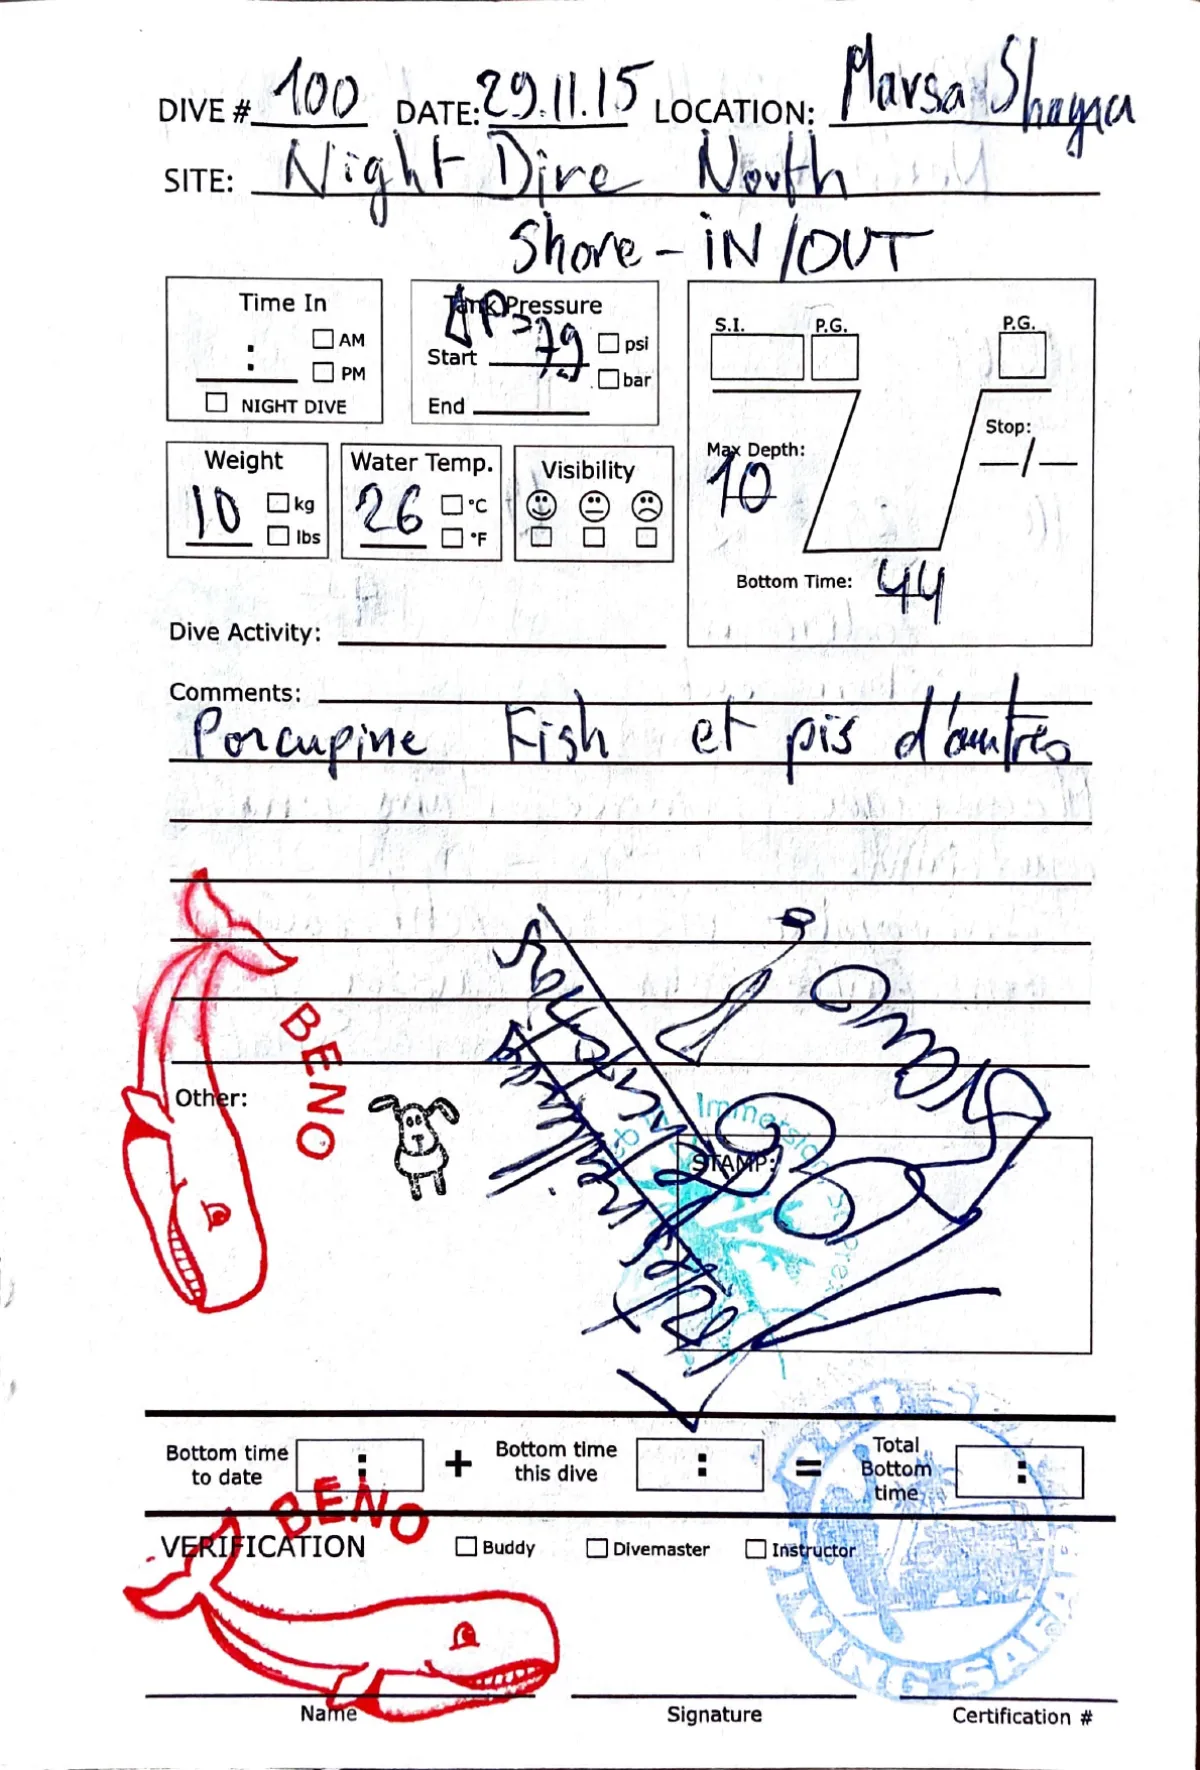 DIVE # 100 DATE: 29.11.15 LOCATION: Marsa Shagra
SITE: Night Dive North
Shore - IN/OUT
Time In
: AM
PM
NIGHT DIVE
Tank Pressure
ΔP= 79
Start psi
bar
End
S.I. P.G. P.G.
Max Depth:
10
Stop:
/
Bottom Time: 44
Weight
10 kg
lbs
Water Temp.
26 °C
°F
Visibility
Dive Activity:
Comments:
Porcupine Fish et pis d'autres
BENO
Other:
Immersion
STAMP:
Bottom time to date : + Bottom time this dive : = Total Bottom time :
BENO
VERIFICATION Buddy Divemaster Instructor
RED S
DIVING SAFA
Name Signature Certification #